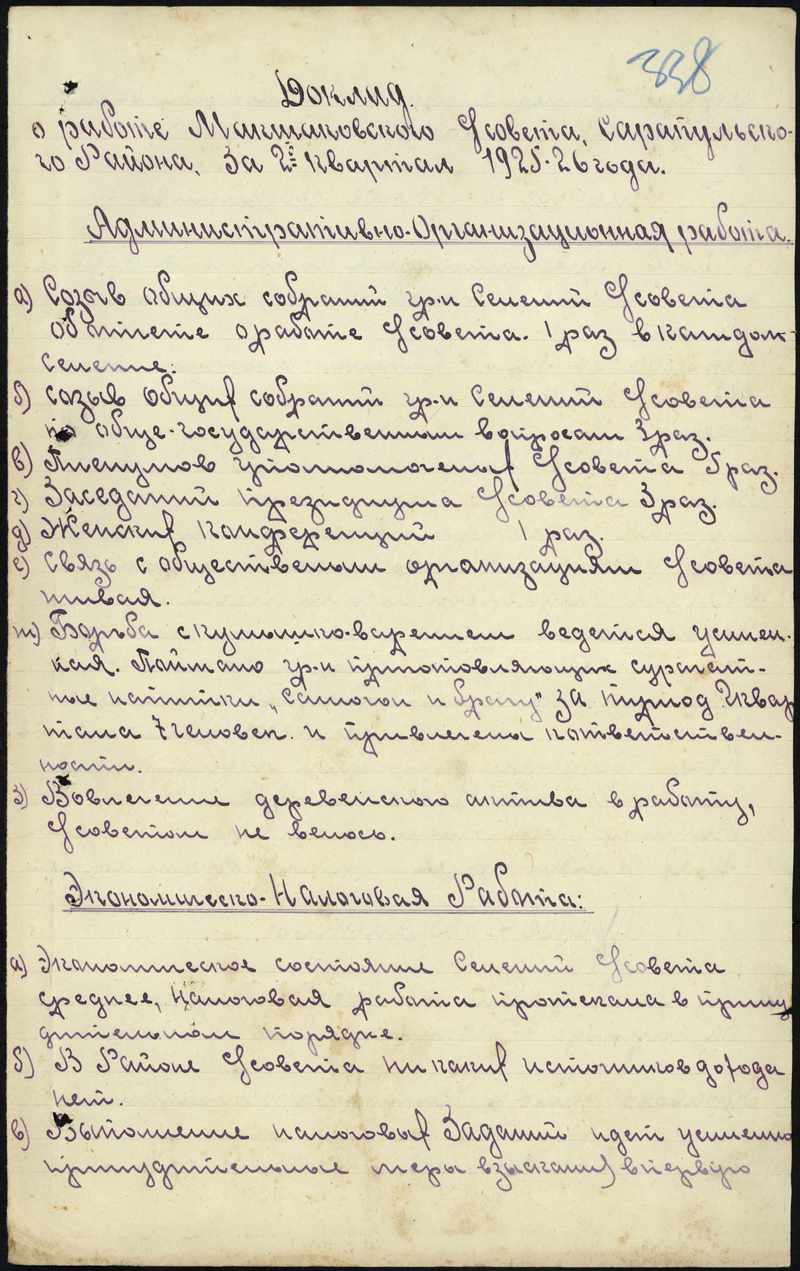 338
Доклад.
о работе Макшаковского С/совета, Сарапульско-
го Района, за 2й квартал 1925-26 года.
Административно-Организационная работа.
а) Созыв общих собраний гр-н Селений С/совета
об отчете о работе С/совета. 1 раз в каждом
селение:
б) созыв общих собраний гр-н Селений С/совета
по обще-государственным вопросам 3 раз.
в) Пленумов уполномоченых С/совета 5 раз.
г) Заседаний президиума С/совета 3 раз.
д) Женских конференций 1 раз.
е) связь с общественым организациям С/совета
живая.
ж) Борьба с кумышко-варением ведется усилен-
ная. Поймано гр-н приготовляющих сурагат-
ные напитки „самогон и брагу" за период 2 квар
тала 7 человек. и привлечены к ответствен-
ности.
з) Вовлечение деревенского актива в работу,
С/советом не велось.
Экономическо-Налоговая Работа:
а) Экономическое состояние Селений С/совета
среднее, налоговая работа протекала в прину
дительном порядке.
б) В Районе С/совета никаких источников дохода
нет.
в) Выполнение налоговых Заданий идет усиленно
принудительные меры взыскания в первую